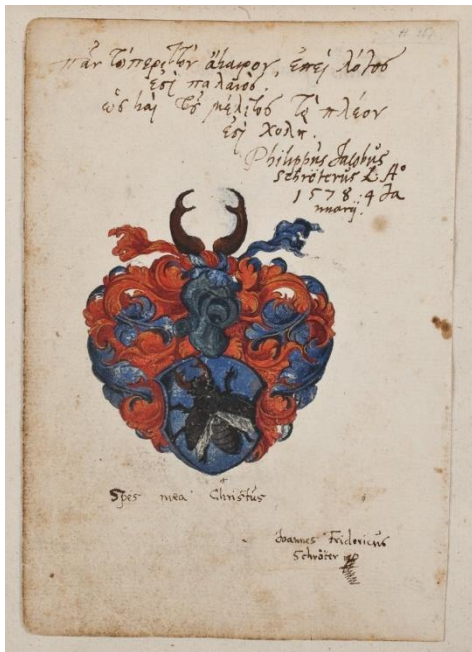 πᾶν τὸ περιττὸν ἄκαιρον, ἐπεὶ λόγος
ἐστὶ παλαιός.
ὡς καὶ τοῦ μέλιτος τὸ πλέον
ἐστὶ χολή.
Philippus Jacobus
Schröterus L. A°
1578. 4 Ja
nuarij.
Spes mea Christus
Joannes Fridericus
Schröter